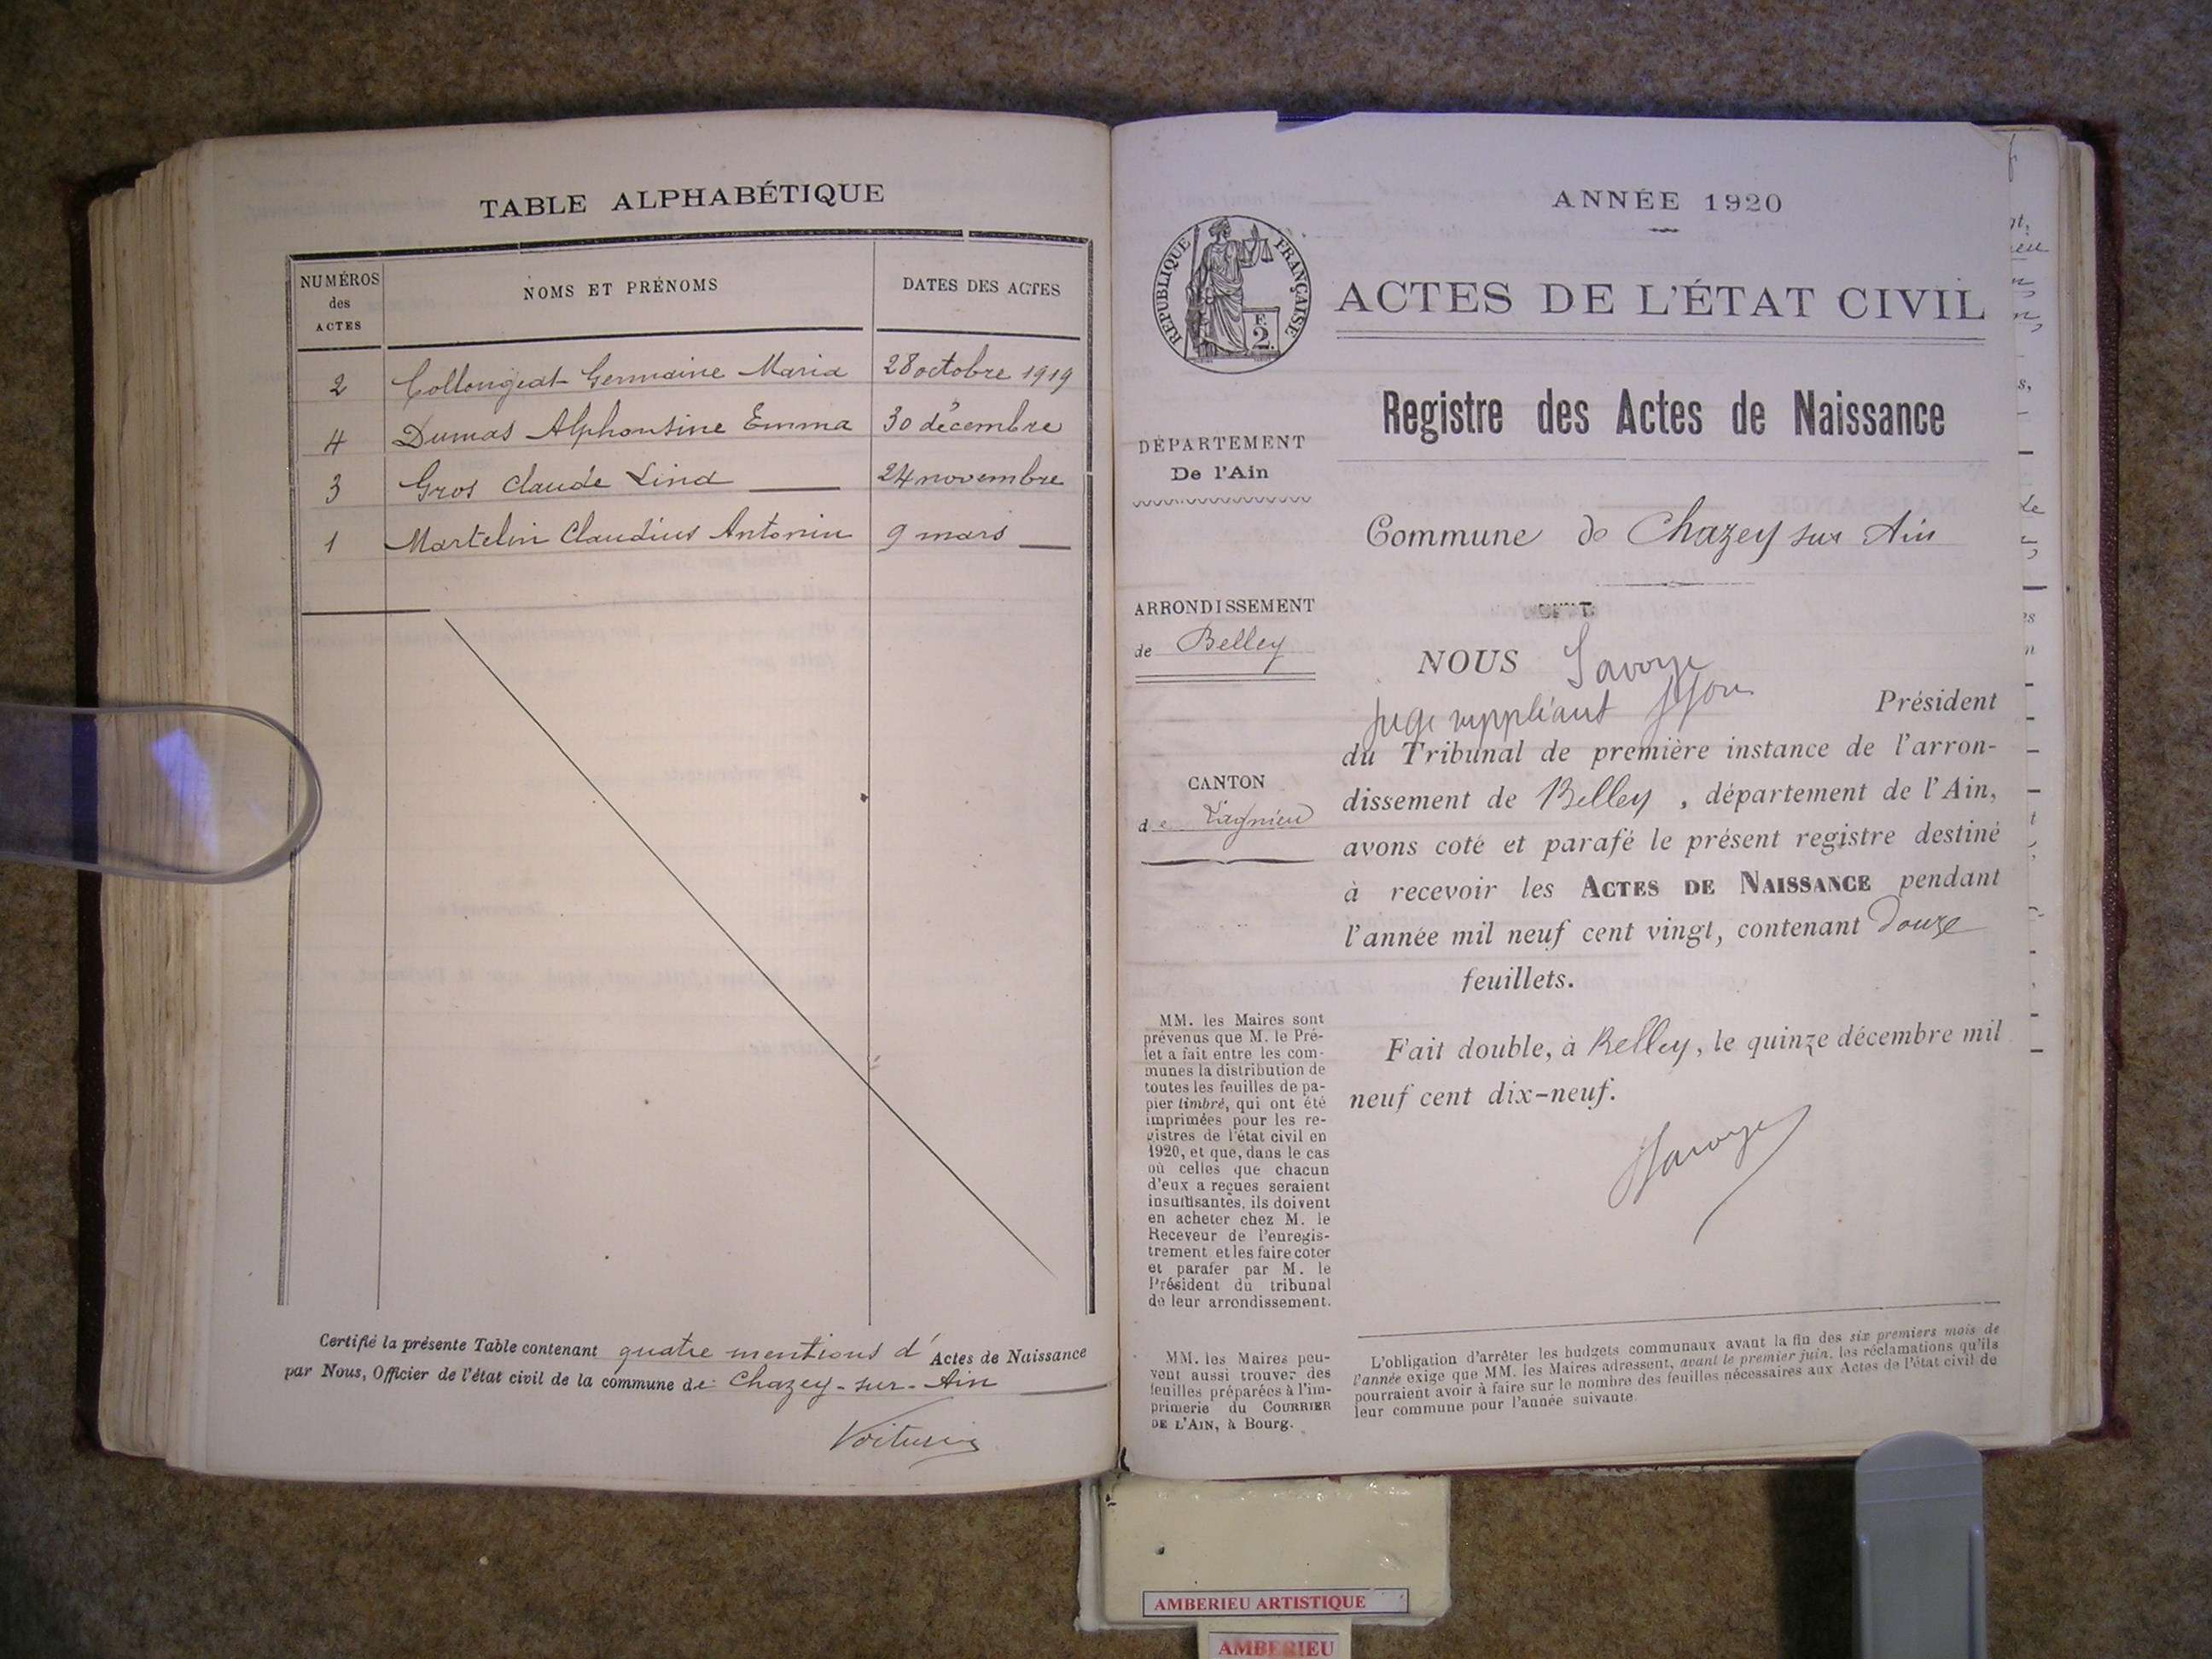 TABLE ALPHABÉTIQUE
NUMÉROS
des
ACTES
NOMS ET PRÉNOMS
DATES DES ACTES
2 Collongeat Germaine Maria 28 octobre 1919
4 Dumas Alphonsine Emma 30 décembre
3 Gros Claude Lind 24 novembre
1 Martelin Claudius Antonin 9 mars
Certifié la présente Table contenant quatre mentions d' Actes de Naissance
par Nous, Officier de l'état civil de la commune de Chazey-sur-Ain
ANNÉE 1920
RÉPUBLIQUE FRANÇAISE
F.
2.
ACTES DE L'ÉTAT CIVIL
Registre des Actes de Naissance
DÉPARTEMENT
De l'Ain
Commune de Chazey sur Ain
ARRONDISSEMENT
de Belley
CANTON
de Lagnieu
NOUS Savoye
juge suppléant Président
du Tribunal de première instance de l'arron-
dissement de Belley, département de l'Ain,
avons coté et parafé le présent registre destiné
à recevoir les ACTES DE NAISSANCE pendant
l'année mil neuf cent vingt, contenant douze
feuillets.
Fait double, à Belley, le quinze décembre mil
neuf cent dix-neuf.
Savoye
MM. les Maires sont
prévenus que M. le Pré-
fet a fait entre les com-
munes la distribution de
toutes les feuilles de pa-
pier timbré, qui ont été
imprimées pour les re-
gistres de l'état civil en
1920, et que, dans le cas
où celles que chacun
d'eux a reçues seraient
insuffisantes, ils doivent
en acheter chez M. le
Receveur de l'enregis-
trement et les faire coter
et parafer par M. le
Président du tribunal
de leur arrondissement.
MM. les Maires peu-
vent aussi trouver des
feuilles préparées à l'im-
primerie du COURRIER
DE L'AIN, à Bourg.
L'obligation d'arrêter les budgets communaux avant la fin des six premiers mois de
l'année exige que MM. les Maires adressent, avant le premier juin, les réclamations qu'ils
pourraient avoir à faire sur le nombre des feuilles nécessaires aux Actes de l'état civil de
leur commune pour l'année suivante.
AMBERIEU ARTISTIQUE
AMBERIEU